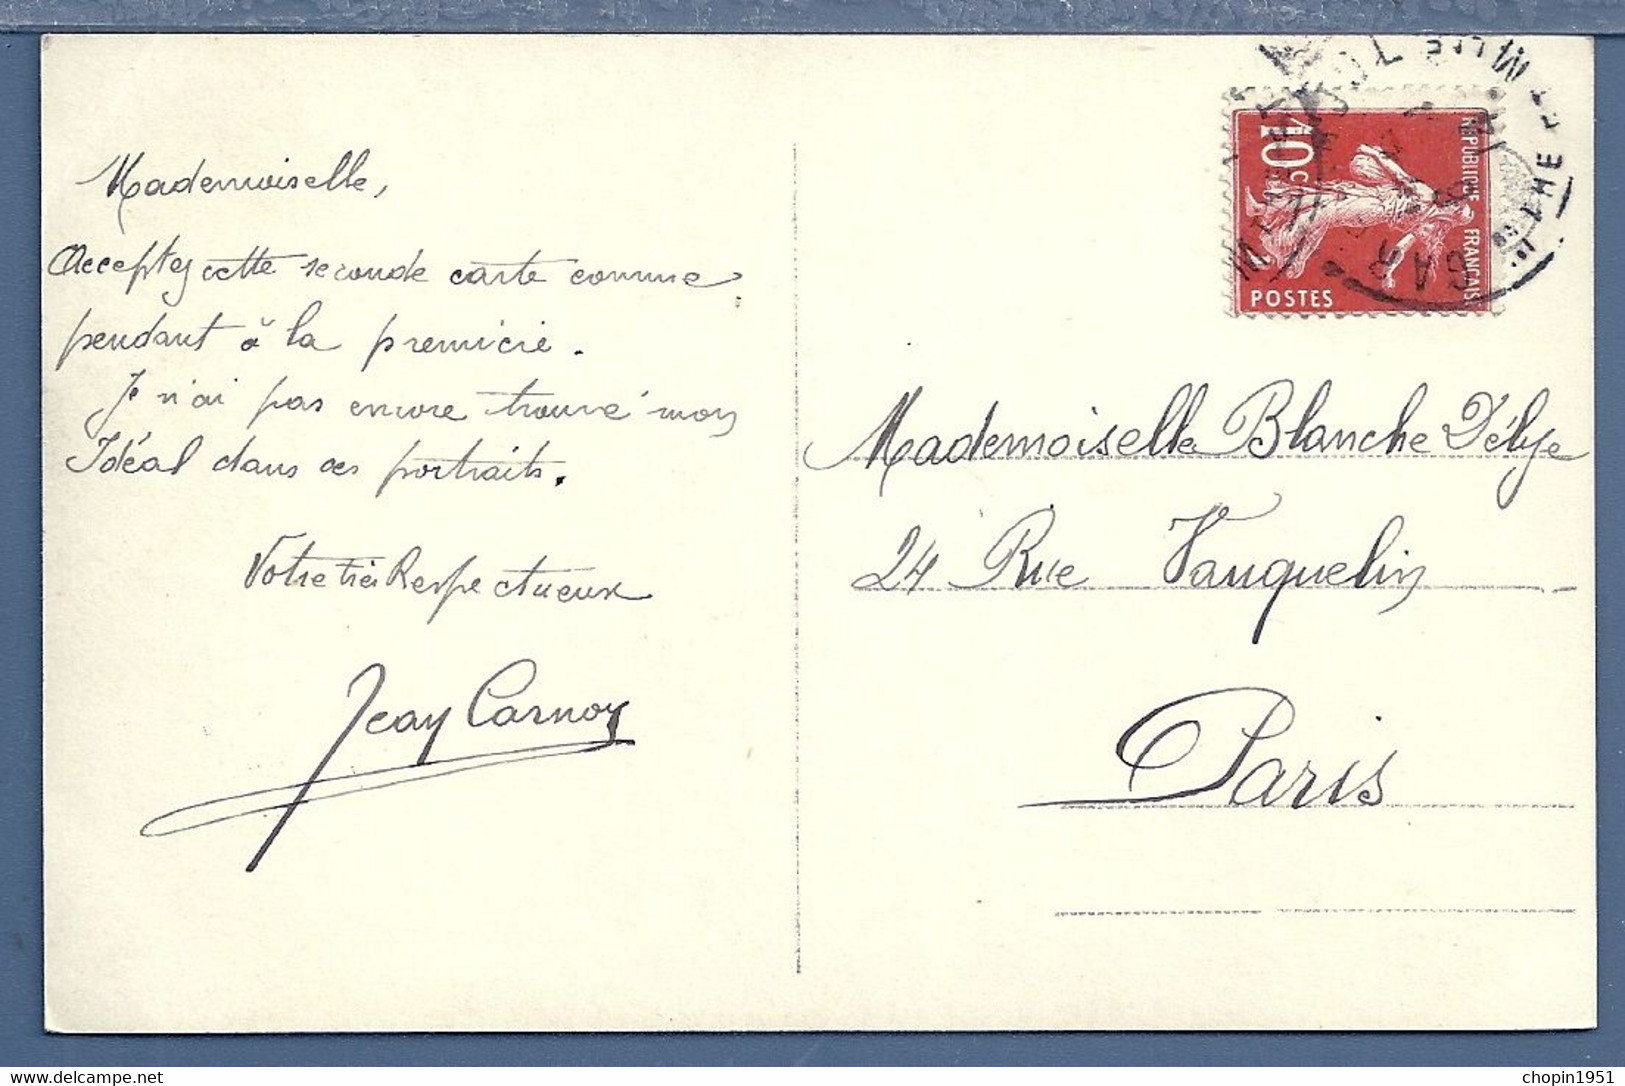 Mademoiselle,
Acceptez cette seconde carte comme
pendant à la première.
Je n'ai pas encore trouvé mon
Idéal dans ces portraits.
Votre très Respectueux
Jean Carnoy
10c
REPUBLIQUE FRANÇAISE
POSTES
Mademoiselle Blanche Délye
24 Rue Vauquelin
Paris
chopin1951